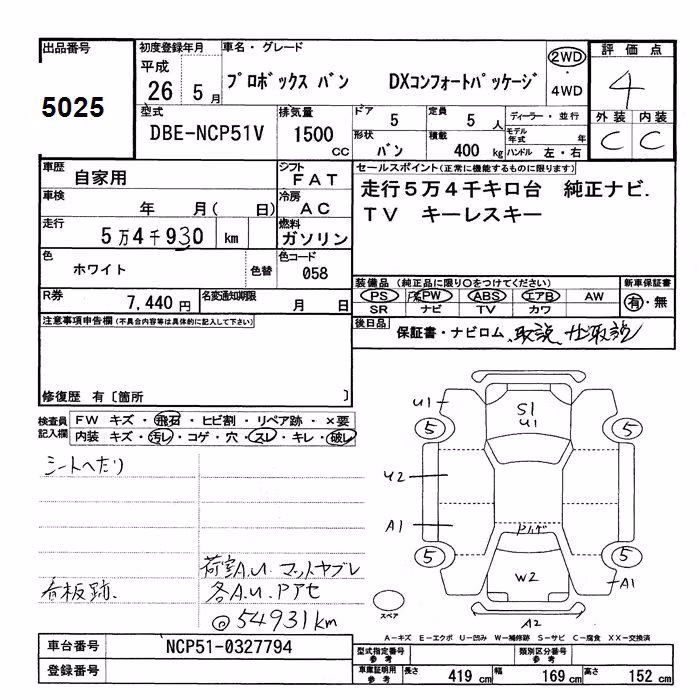 出品番号
5025
初度登録年月
平成
26 5 月
車名・グレード
プロボックス バン DXコンフォートパッケージ
2WD
・
4WD
評価点
4
外装 内装
C C
型式
DBE-NCP51V
排気量
1500
CC
ドア
5
定員
5 人
ディーラー・並行
モデル年式 年
形状
バン
積載
400 kg
ハンドル 左・右
車歴
自家用
シフト
FAT
車検
年 月( 日)
冷房
AC
走行
5万4千930 km
燃料
ガソリン
色
ホワイト
色替
色コード
058
R券
7,440円
名変通知期限
月 日
セールスポイント(正常に機能するものに限ります)
走行5万4千キロ台 純正ナビ.
TV キーレスキー
装備品 (純正品に限り○をつけてください)
新車保証書
PS PW ABS エアB AW
SR ナビ TV カワ
有・無
後日品
保証書・ナビロム、取説
注意事項申告欄(不具合内容等は具体的に記入して下さい)
修復歴 有〔箇所 〕
検査員
記入欄
FW キズ・飛石・ヒビ割・リペア跡・×要
内装 キズ・汚レ・コゲ・穴・スレ・キレ・破レ
シートへたり
荷室A.U. マットヤブレ
看板跡.
各A.U. Pアセ
@54931km
U1
S1
U1
5
5
U2
A1
W2
5
5
A1
A2
スペア
A−キズ E−エクボ U−凹み W−補修跡 S−サビ C−腐食 XX−交換済
車台番号
NCP51-0327794
登録番号
型式指定番号
参考
類別区分番号
参考
車庫証明用
参考
長さ
419 cm
幅
169 cm
高さ
152 cm